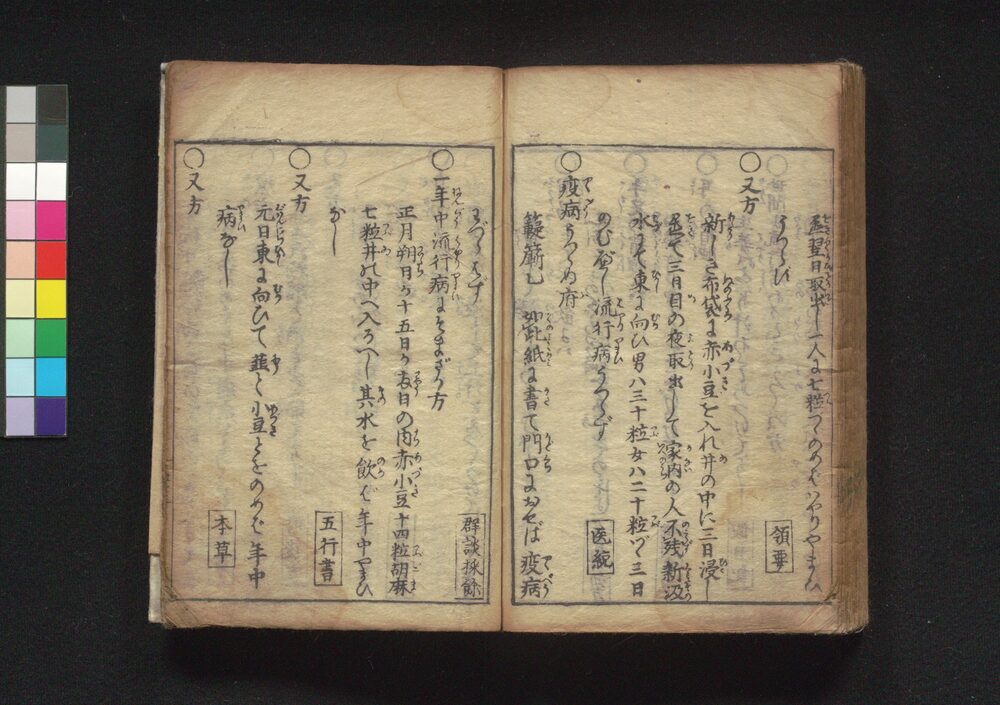 翌日取出し一人に七粒つゝのめばはやりやまひ
うつらず
領要
○又方
新しき布袋に赤小豆を入れ井の中に三日浸し
置て三日目の夜取出して家内の人不残新汲
水にて東に向ひ男ハ三十粒女ハ二十粒づゝ三日
のむべし流行病うつらず
医統
○疫病うつらぬ府
簸簛 如此紙に書て門口におせば疫病
うつらず
群談採餘
○一年中流行病にそまざる方
正月朔日か十五日か友日の内赤小豆十四粒胡麻
七粒井の中へ入るべし其水を飲ば年中やまひ
なし
五行書
○又方
元日東に向ひて韮と小豆とをのめば年中
病なし
本草
○又方